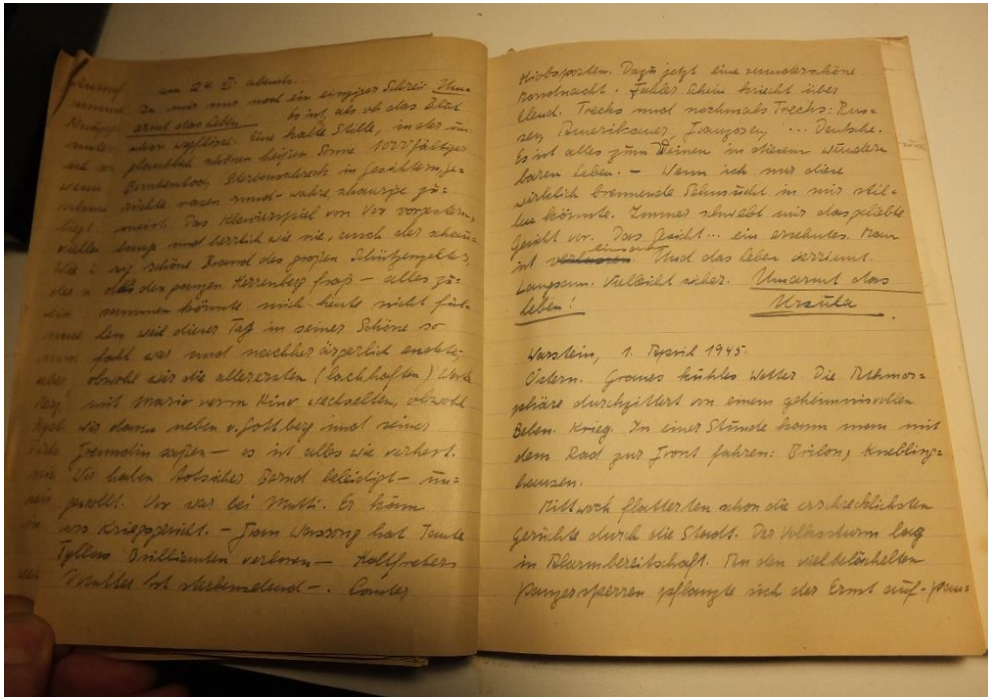 am 24. III. abends.
In mir nur noch ein einziger Schrei: Um=
armt das Leben. Es ist, als ob das Blut
schon wegflösse. Eine kalte Stille, in der un=
glaublich schönen heißen Sonne. 1000fältiger
Sterbensschreck in Gesichtern, Ge=
rüchte rasen rund – wahre schaurige zu=
meist. Das Klavierspiel von Vor vorgestern,
lang und herrlich wie sie, auch der schau=
rig schöne Brand des großen Schützenzeltes,
der den ganzen Herrenberg fraß – alles zu=
sammen könnte mich heute nicht fül=
len weil dieser Tag in seiner Schöne so
fahl war und nachher ärgerlich endete,
obwohl wir die allerersten (lachhaften) Worte
mit Mario vorm Kino wechselten, obwohl
wir dann neben v. Gottberg und seiner
Freundin saßen – es ist alles wie verhext.
Wir haben Bernd beleidigt – un=
gewollt. Vor war bei Mutti. Er kann
vors Kriegsgericht. – Frau hat Tante
Tyllas Brillianten verloren –
Mutter ist sterbenselend –. Lauter
Hiobsposten. Dazu jetzt eine wunderschöne
Mondnacht. Fahler Schein kriecht über
Elend. Trecks und nochmals Trecks: Rus=
sen, Amerikaner, Franzosen, ... Deutsche.
Es ist alles zum Weinen in diesem wunder=
baren Leben. – Wenn ich nur diese
wirklich brennende Sehnsucht in mir stil=
len könnte. Immer schwebt mir das geliebte
Gesicht vor. Das Gesicht... ein ersehntes. Man
ist einsam. Und das Leben verrinnt.
Langsam. Vielleicht sicher. Umarmt das
Leben! Ursula.
Warstein, 1. April 1945.
Ostern. Graues kühles Wetter. Die Athmos=
phäre durchzittert von einem geheimnisvollen
Beben. Krieg. In einer Stunde kann man mit
dem Rad zur Front fahren: Brilon, Knebling=
hausen.
Mittwoch flatterten schon die erschrecklichsten
Gerüchte durch die Stadt. Der Volkssturm lag
in Alarmbereitschaft. An den vielbelächelten
Panzersperren pflanzte sich der Ernst auf –